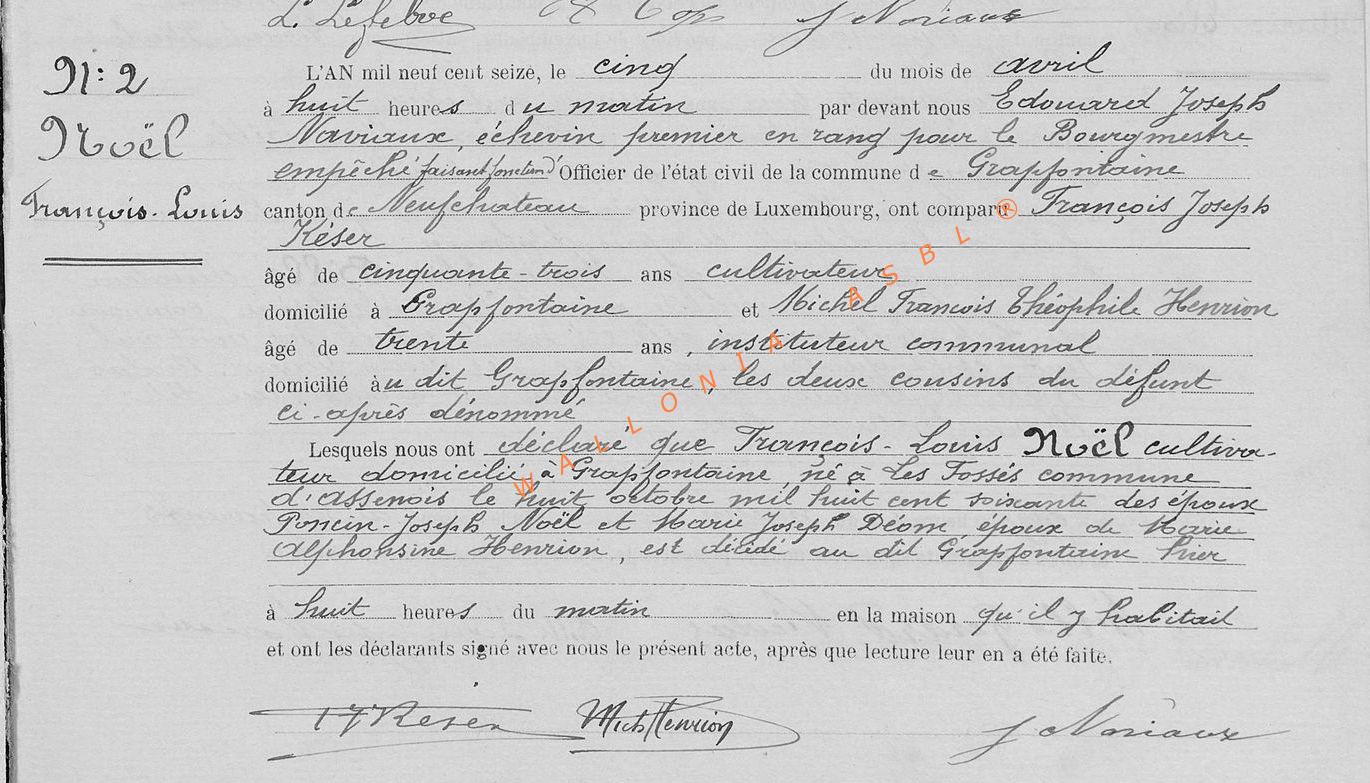 L. Lefebvre
J Noriaux
N: 2
Noël
François-Louis
L'AN mil neuf cent seize, le cinq du mois de avril
à huit heures du matin par devant nous Edouard Joseph
Naviaux, échevin premier en rang pour le Bourgmestre
empêché faisant fonction d' Officier de l'état civil de la commune de Grapfontaine
canton de Neufchateau province de Luxembourg, ont comparu François Joseph
Késer
âgé de cinquante-trois ans cultivateur
domicilié à Grapfontaine et Michel François Théophile Henrion
âgé de trente ans, instituteur communal
domicilié àu dit Grapfontaine, les deux cousins du défunt
ci-après dénommé
Lesquels nous ont déclaré que François-Louis Noël cultiva-
teur domicilié à Grapfontaine né à Les Fossés commune
d'Assenois le huit octobre mil huit cent soixante des époux
Poncin-Joseph Noël et Marie Joseph Déom époux de Marie
Alphonsine Henrion, est décédé au dit Grapfontaine hier
à huit heures du matin en la maison qu'il y habitait
et ont les déclarants signé avec nous le présent acte, après que lecture leur en a été faite.
FJ Keser Mich Henrion J Noriaux
WALLONIA ASBL ®